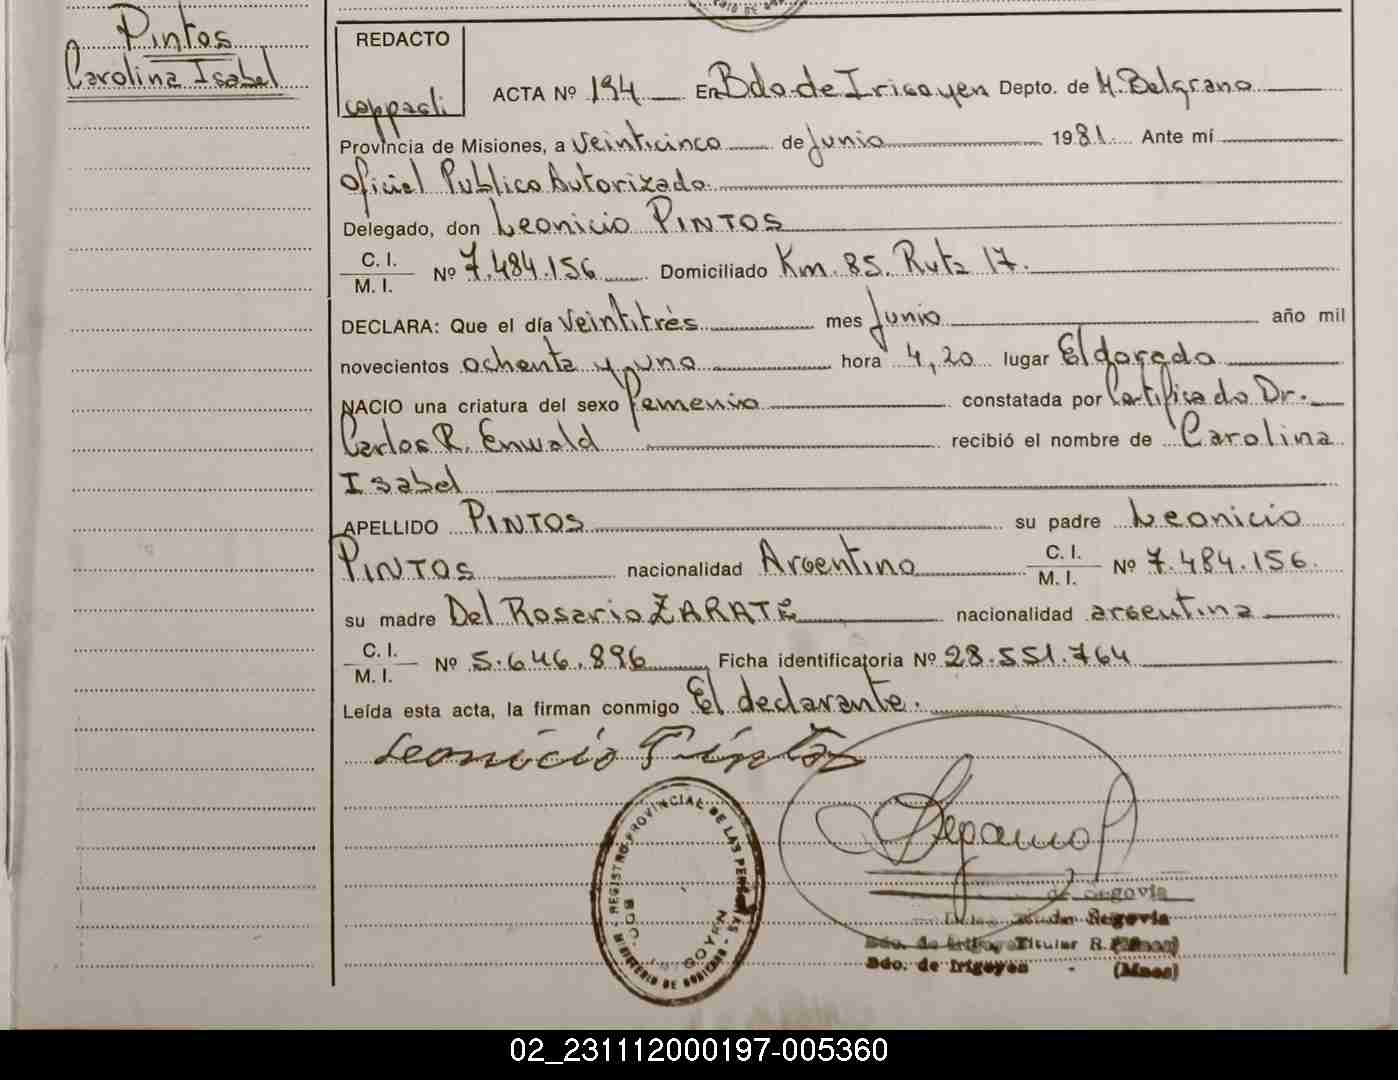 Pintos
Carolina Isabel
REDACTO
ACTA Nº 194 En Bdo. de Irigoyen Depto. de M. Belgrano
Provincia de Misiones, a Veinticinco de Junio 1981. Ante mí
Oficial Publico Autorizado.
Delegado, don Leonicio PINTOS
C. I.
M. I. Nº 7.484.156 Domiciliado Km. 85. Ruta 17.
DECLARA: Que el día Veintitrés mes Junio año mil
novecientos ochenta y uno hora 4,20 lugar Eldorado
NACIO una criatura del sexo femenino constatada por Certificado Dr.
Carlos R. Enwald recibió el nombre de Carolina
Isabel
APELLIDO PINTOS su padre Leonicio
PINTOS nacionalidad Argentino C. I.
M. I. Nº 7.484.156.
su madre Del Rosario ZARATE nacionalidad argentina
C. I.
M. I. Nº 5.646.896 Ficha identificatoria Nº 28.551.764
Leída esta acta, la firman conmigo El declarante.
Leonicio Pintos
REGISTRO PROVINCIAL DE LAS PERSONAS
MINISTERIO DE GOBIERNO
BDO. IRIGOYEN
de Segovia
Segovia
Bdo. de Irigoyen Titular R.
Bdo. de Irigoyen - (Mnes)
02_231112000197-005360